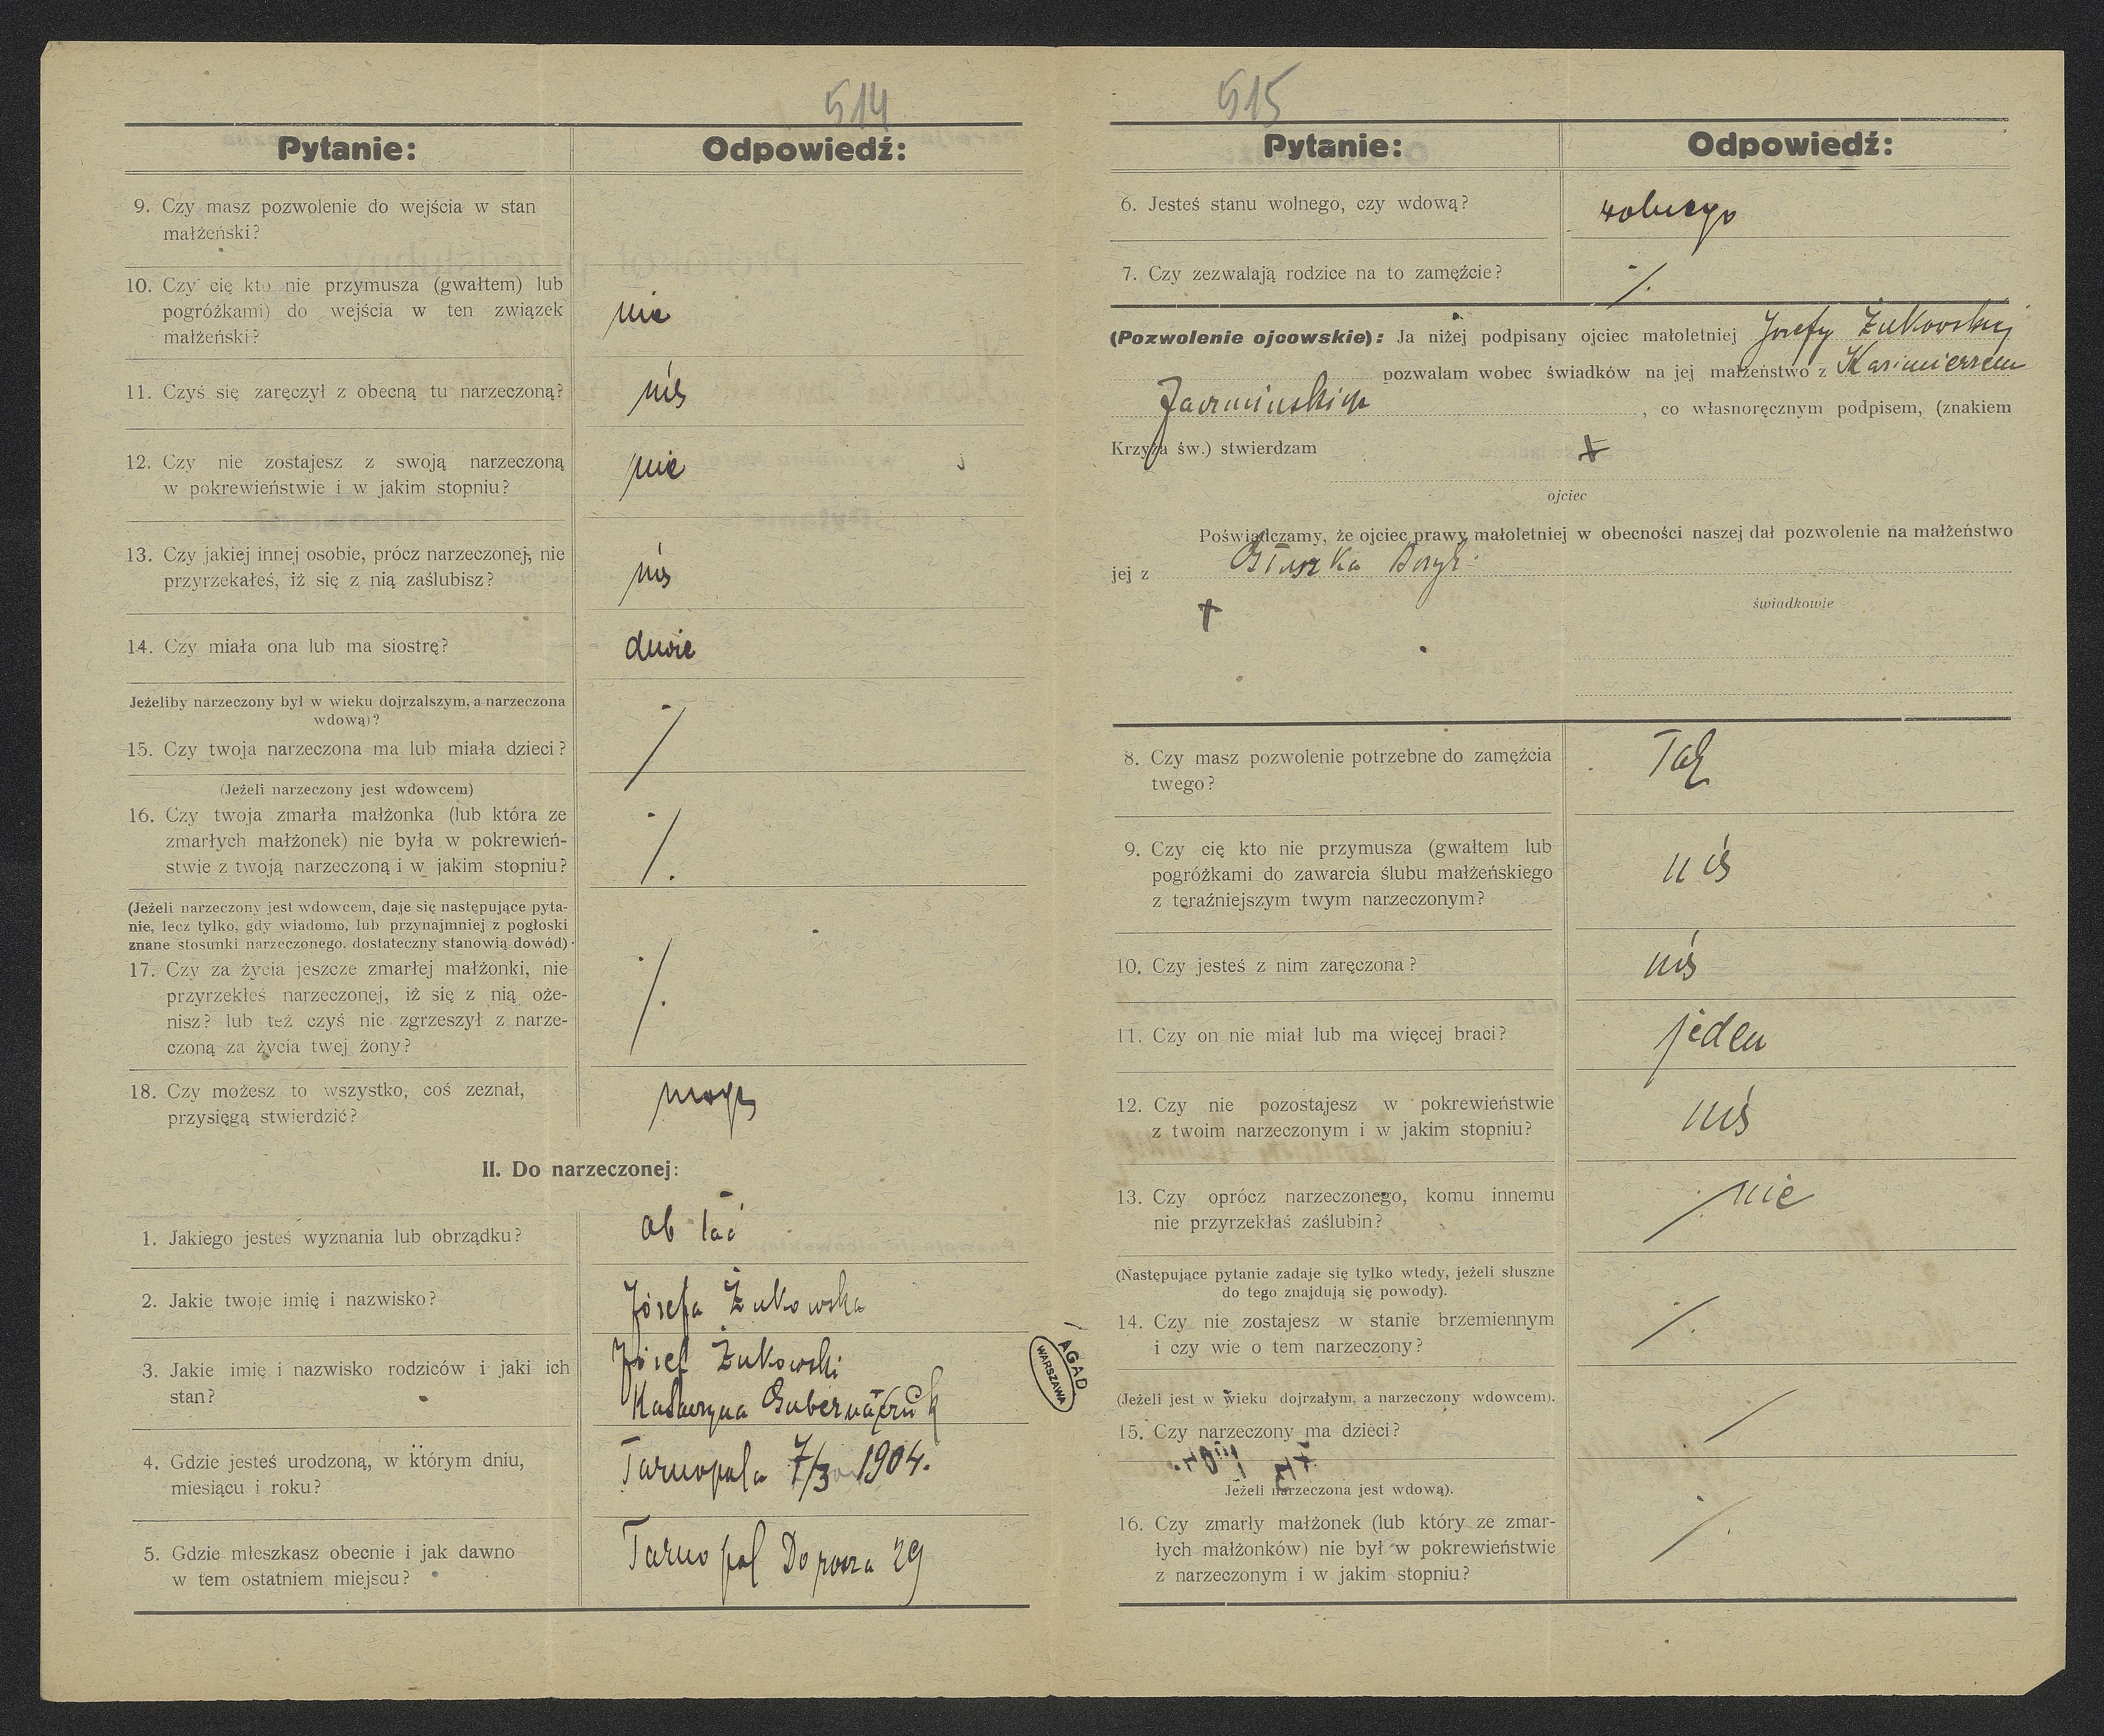 514
Pytanie:
Odpowiedź:
9. Czy masz pozwolenie do wejścia w stan
małżeński?
10. Czy cię kto nie przymusza (gwałtem) lub
pogróżkami) do wejścia w ten związek
małżeński?
nie
11. Czyś się zaręczył z obecną tu narzeczoną?
nie
12. Czy nie zostajesz z swoją narzeczoną
w pokrewieństwie i w jakim stopniu?
nie
13. Czy jakiej innej osobie, prócz narzeczonej, nie
przyrzekałeś, iż się z nią zaślubisz?
nie
14. Czy miała ona lub ma siostrę?
dwie
Jeżeliby narzeczony był w wieku dojrzalszym, a narzeczona
wdową)?
15. Czy twoja narzeczona ma lub miała dzieci?
(Jeżeli narzeczony jest wdowcem)
16. Czy twoja zmarła małżonka (lub która ze
zmarłych małżonek) nie była w pokrewień-
stwie z twoją narzeczoną i w jakim stopniu?
(Jeżeli narzeczony jest wdowcem, daje się następujące pyta-
nie, lecz tylko, gdy wiadomo, lub przynajmniej z pogłoski
znane stosunki narzeczonego, dostateczny stanowią dowód)
17. Czy za życia jeszcze zmarłej małżonki, nie
przyrzekłeś narzeczonej, iż się z nią oże-
nisz? lub też czyś nie zgrzeszył z narze-
czoną za życia twej żony?
18. Czy możesz to wszystko, coś zeznał,
przysięgą stwierdzić?
mogę
II. Do narzeczonej:
1. Jakiego jesteś wyznania lub obrządku?
ob łać
2. Jakie twoje imię i nazwisko?
Józefa Żukowska
3. Jakie imię i nazwisko rodziców i jaki ich
stan?
Józef Żukowski
Katarzyna
4. Gdzie jesteś urodzoną, w którym dniu,
miesiącu i roku?
Tarnopola 7/3 1904.
5. Gdzie mieszkasz obecnie i jak dawno
w tem ostatniem miejscu?
Tarnopol 29
AGAD
WARSZAWA
515
Pytanie:
Odpowiedź:
6. Jesteś stanu wolnego, czy wdową?
wolnego
7. Czy zezwalają rodzice na to zamęźcie?
(Pozwolenie ojcowskie): Ja niżej podpisany ojciec małoletniej Józefy Żukowskiej
pozwalam wobec świadków na jej małżeństwo z Kazimierzem
, co własnoręcznym podpisem, (znakiem
Krzyża św.) stwierdzam +
ojciec
Poświadczamy, że ojciec prawy małoletniej w obecności naszej dał pozwolenie na małżeństwo
jej z
świadkowie
+
8. Czy masz pozwolenie potrzebne do zamęźcia
twego?
Tak
9. Czy cię kto nie przymusza (gwałtem lub
pogróżkami do zawarcia ślubu małżeńskiego
z teraźniejszym twym narzeczonym?
nie
10. Czy jesteś z nim zaręczona?
nie
11. Czy on nie miał lub ma więcej braci?
jeden
12. Czy nie pozostajesz w pokrewieństwie
z twoim narzeczonym i w jakim stopniu?
nie
13. Czy oprócz narzeczonego, komu innemu
nie przyrzekłaś zaślubin?
nie
(Następujące pytanie zadaje się tylko wtedy, jeżeli słuszne
do tego znajdują się powody).
14. Czy nie zostajesz w stanie brzemiennym
i czy wie o tem narzeczony?
(Jeżeli jest w wieku dojrzałym, a narzeczony wdowcem).
15. Czy narzeczony ma dzieci?
Jeżeli narzeczona jest wdową).
16. Czy zmarły małżonek (lub który ze zmar-
łych małżonków) nie był w pokrewieństwie
z narzeczonym i w jakim stopniu?